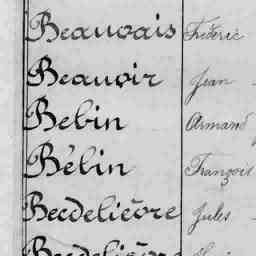 Beauvais Frédéric
Beauvoir Jean
Bebin Armand
Bébin François
Becdelièvre Jules
Becdelièvre